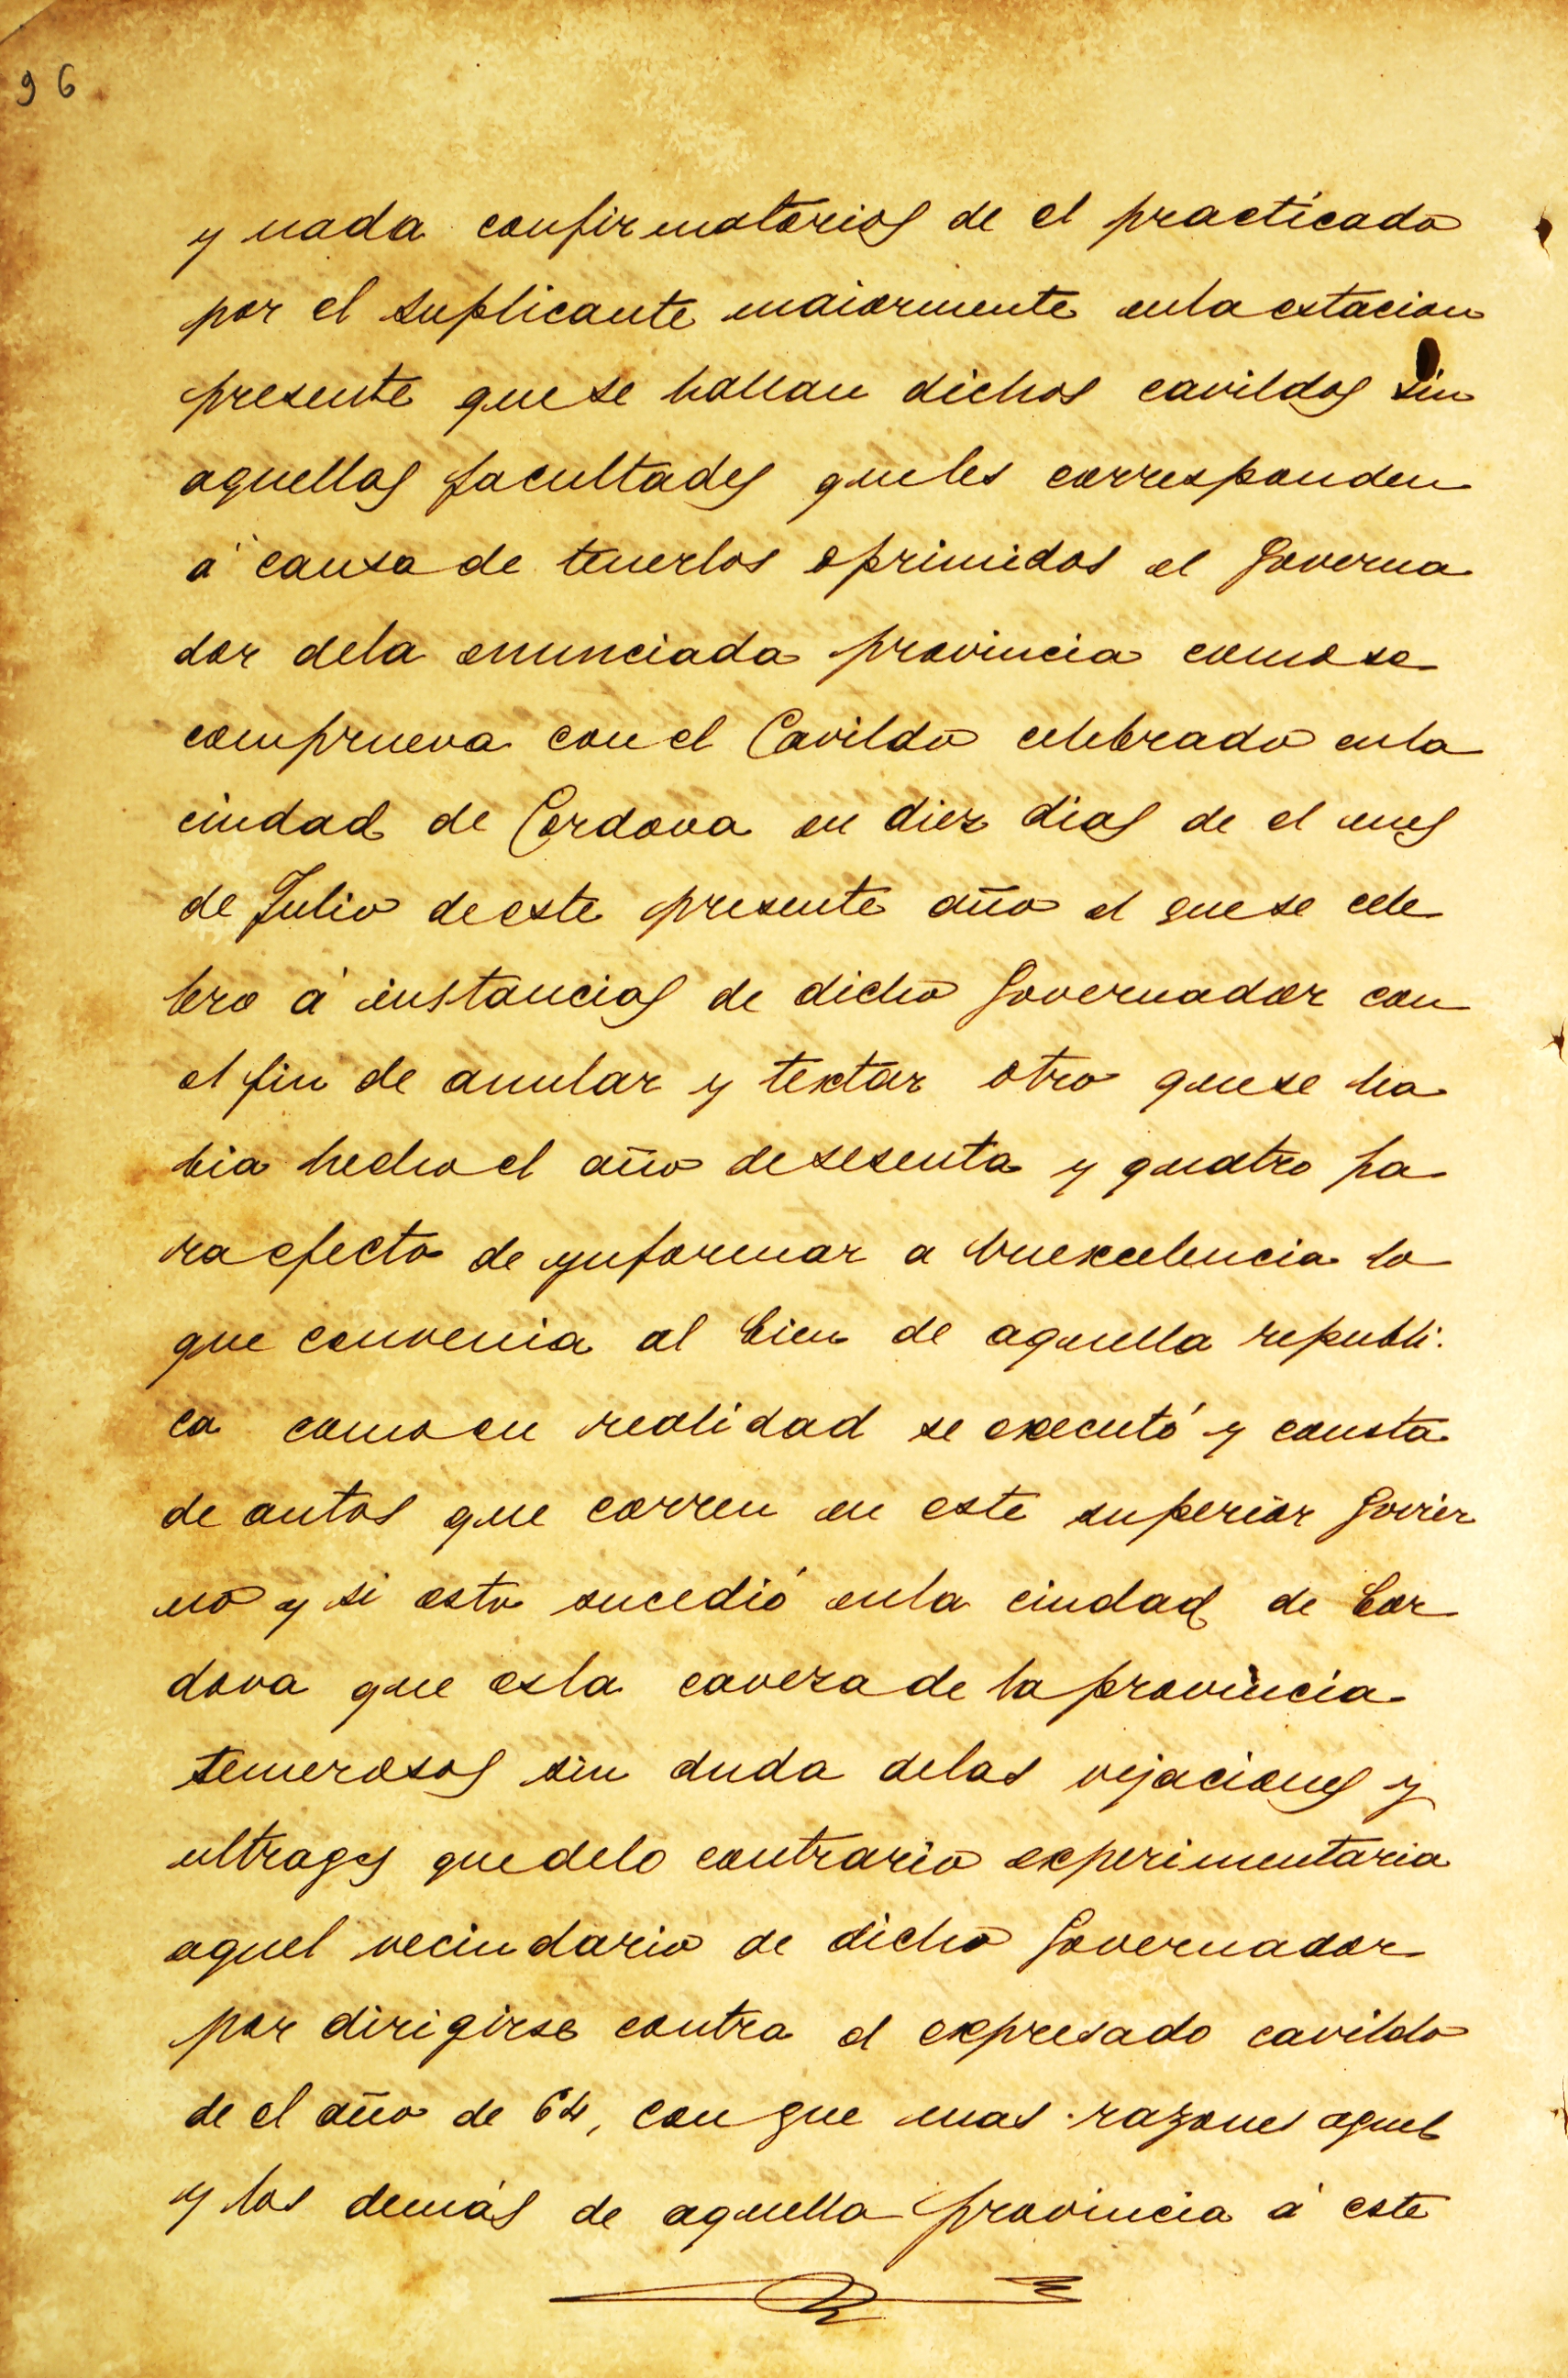 96
y nada confirmatorios de el practicado
por el suplicante maiormente enla estacion
presente quese hallan dichos cavildos sin
aquellas facultades queles corresponden
á causa de tenerlos oprimidos el Governa
dor dela enunciada provincia comose
comprueva con el Cavildo celebrado enla
ciudad de Cordova en diez dias de el mes
de Julio de este presente año el quese cele
bro á instancias de dicho Governador con
el fin de anular y textar otro quese ha
bia hecho el año de sesenta y quatro pa
ra efecto de ynformar a vuexcelencia lo
que convenia al bien de aquella republi.
ca como en realidad se executó y consta
de autos que corren en este superior Govier
no y si esto sucedió enla ciudad de Cor
dova que esla caveza de la provincia
temerosos sin duda delas vejaciones y
ultrages quedelo contrario experimentaria
aquel vecindario de dicho Governador
por dirigirse contra el expresado cavildo
de el año de 64, con que mas razones aquel
y los demás de aquella provincia á este